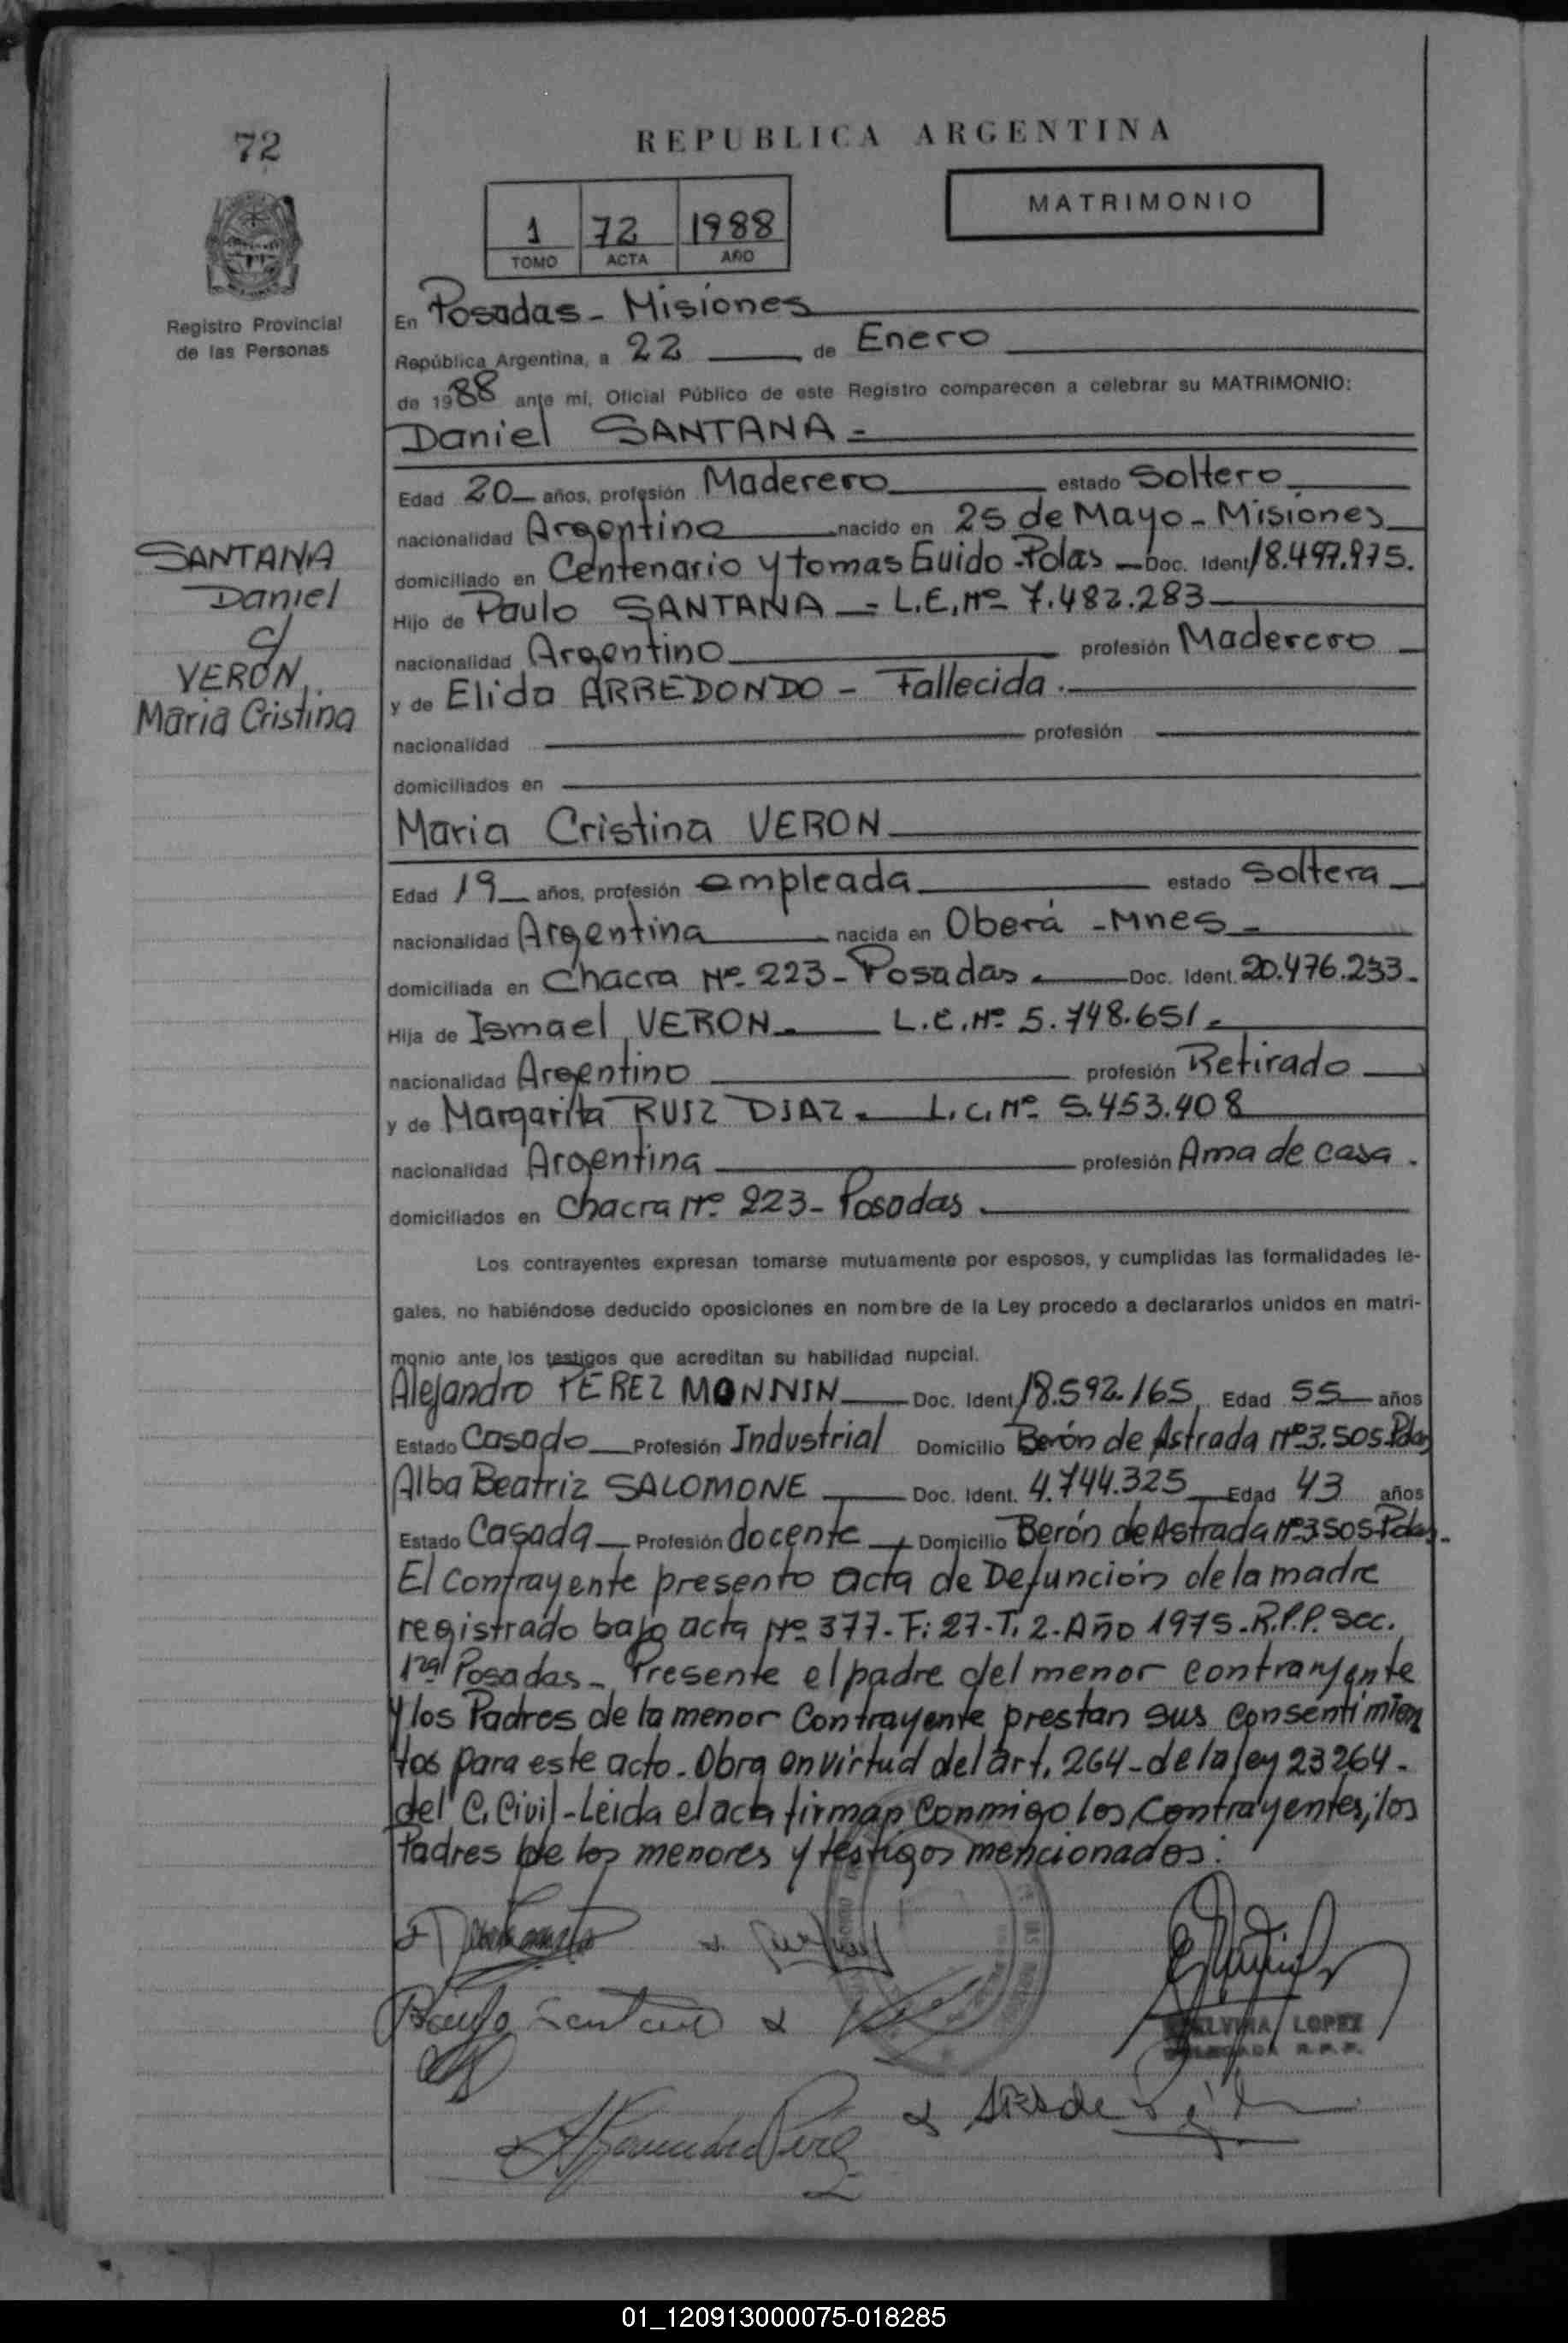 72
REPUBLICA ARGENTINA
MATRIMONIO
1 72 1988
TOMO ACTA AÑO
Registro Provincial
de las Personas
En Posadas - Misiones
República Argentina, a 22 de Enero
de 1988 ante mí, Oficial Público de este Registro comparecen a celebrar su MATRIMONIO:
Daniel SANTANA =
Edad 20 años, profesión Maderero estado Soltero
nacionalidad Argentino nacido en 25 de Mayo - Misiones
domiciliado en Centenario y tomas Guido - Pdas - Doc. Ident 18.497.975.
Hijo de Paulo SANTANA = L.E. Nº 7.482.283
nacionalidad Argentino profesión Maderero
y de Elida ARREDONDO - Fallecida.
nacionalidad profesión
domiciliados en
SANTANA
Daniel
c/
VERON,
Maria Cristina
Maria Cristina VERON
Edad 19 años, profesión empleada estado Soltera
nacionalidad Argentina nacida en Oberá - Mnes -
domiciliada en Chacra Nº 223 - Posadas. Doc. Ident. 20.476.233.
Hija de Ismael VERON. L.E. Nº 5.748.651.
nacionalidad Argentino profesión Retirado
y de Margarita RUIZ DIAZ. L.C. Nº 5.453.408
nacionalidad Argentina profesión Ama de casa.
domiciliados en Chacra Nº 223 - Posadas.
Los contrayentes expresan tomarse mutuamente por esposos, y cumplidas las formalidades le-
gales, no habiéndose deducido oposiciones en nombre de la Ley procedo a declararlos unidos en matri-
monio ante los testigos que acreditan su habilidad nupcial.
Alejandro PEREZ MONNIN Doc. Ident 18.592.165 Edad 55 años
Estado Casado Profesión Industrial Domicilio Berón de Astrada Nº 3.505 Pdas
Alba Beatriz SALOMONE Doc. Ident. 4.744.325 Edad 43 años
Estado Casada Profesión docente Domicilio Berón de Astrada Nº 3505 Pdas.
El contrayente presento acta de Defunción de la madre
registrado bajo acta Nº 377 - F: 27 - T. 2 - Año 1975 - R.P.P. Sec.
1ra Posadas - Presente el padre del menor contrayente
y los Padres de la menor Contrayente prestan sus consentimien
tos para este acto. Obra en virtud del art. 264 - de la ley 23264 -
del C. Civil - Leida el acta firman conmigo los Contrayentes, los
Padres de los menores y testigos mencionados:
Paulo Santana
ELVIRA LOPEZ
DELEGADA R.P.P.
01_120913000075-018285